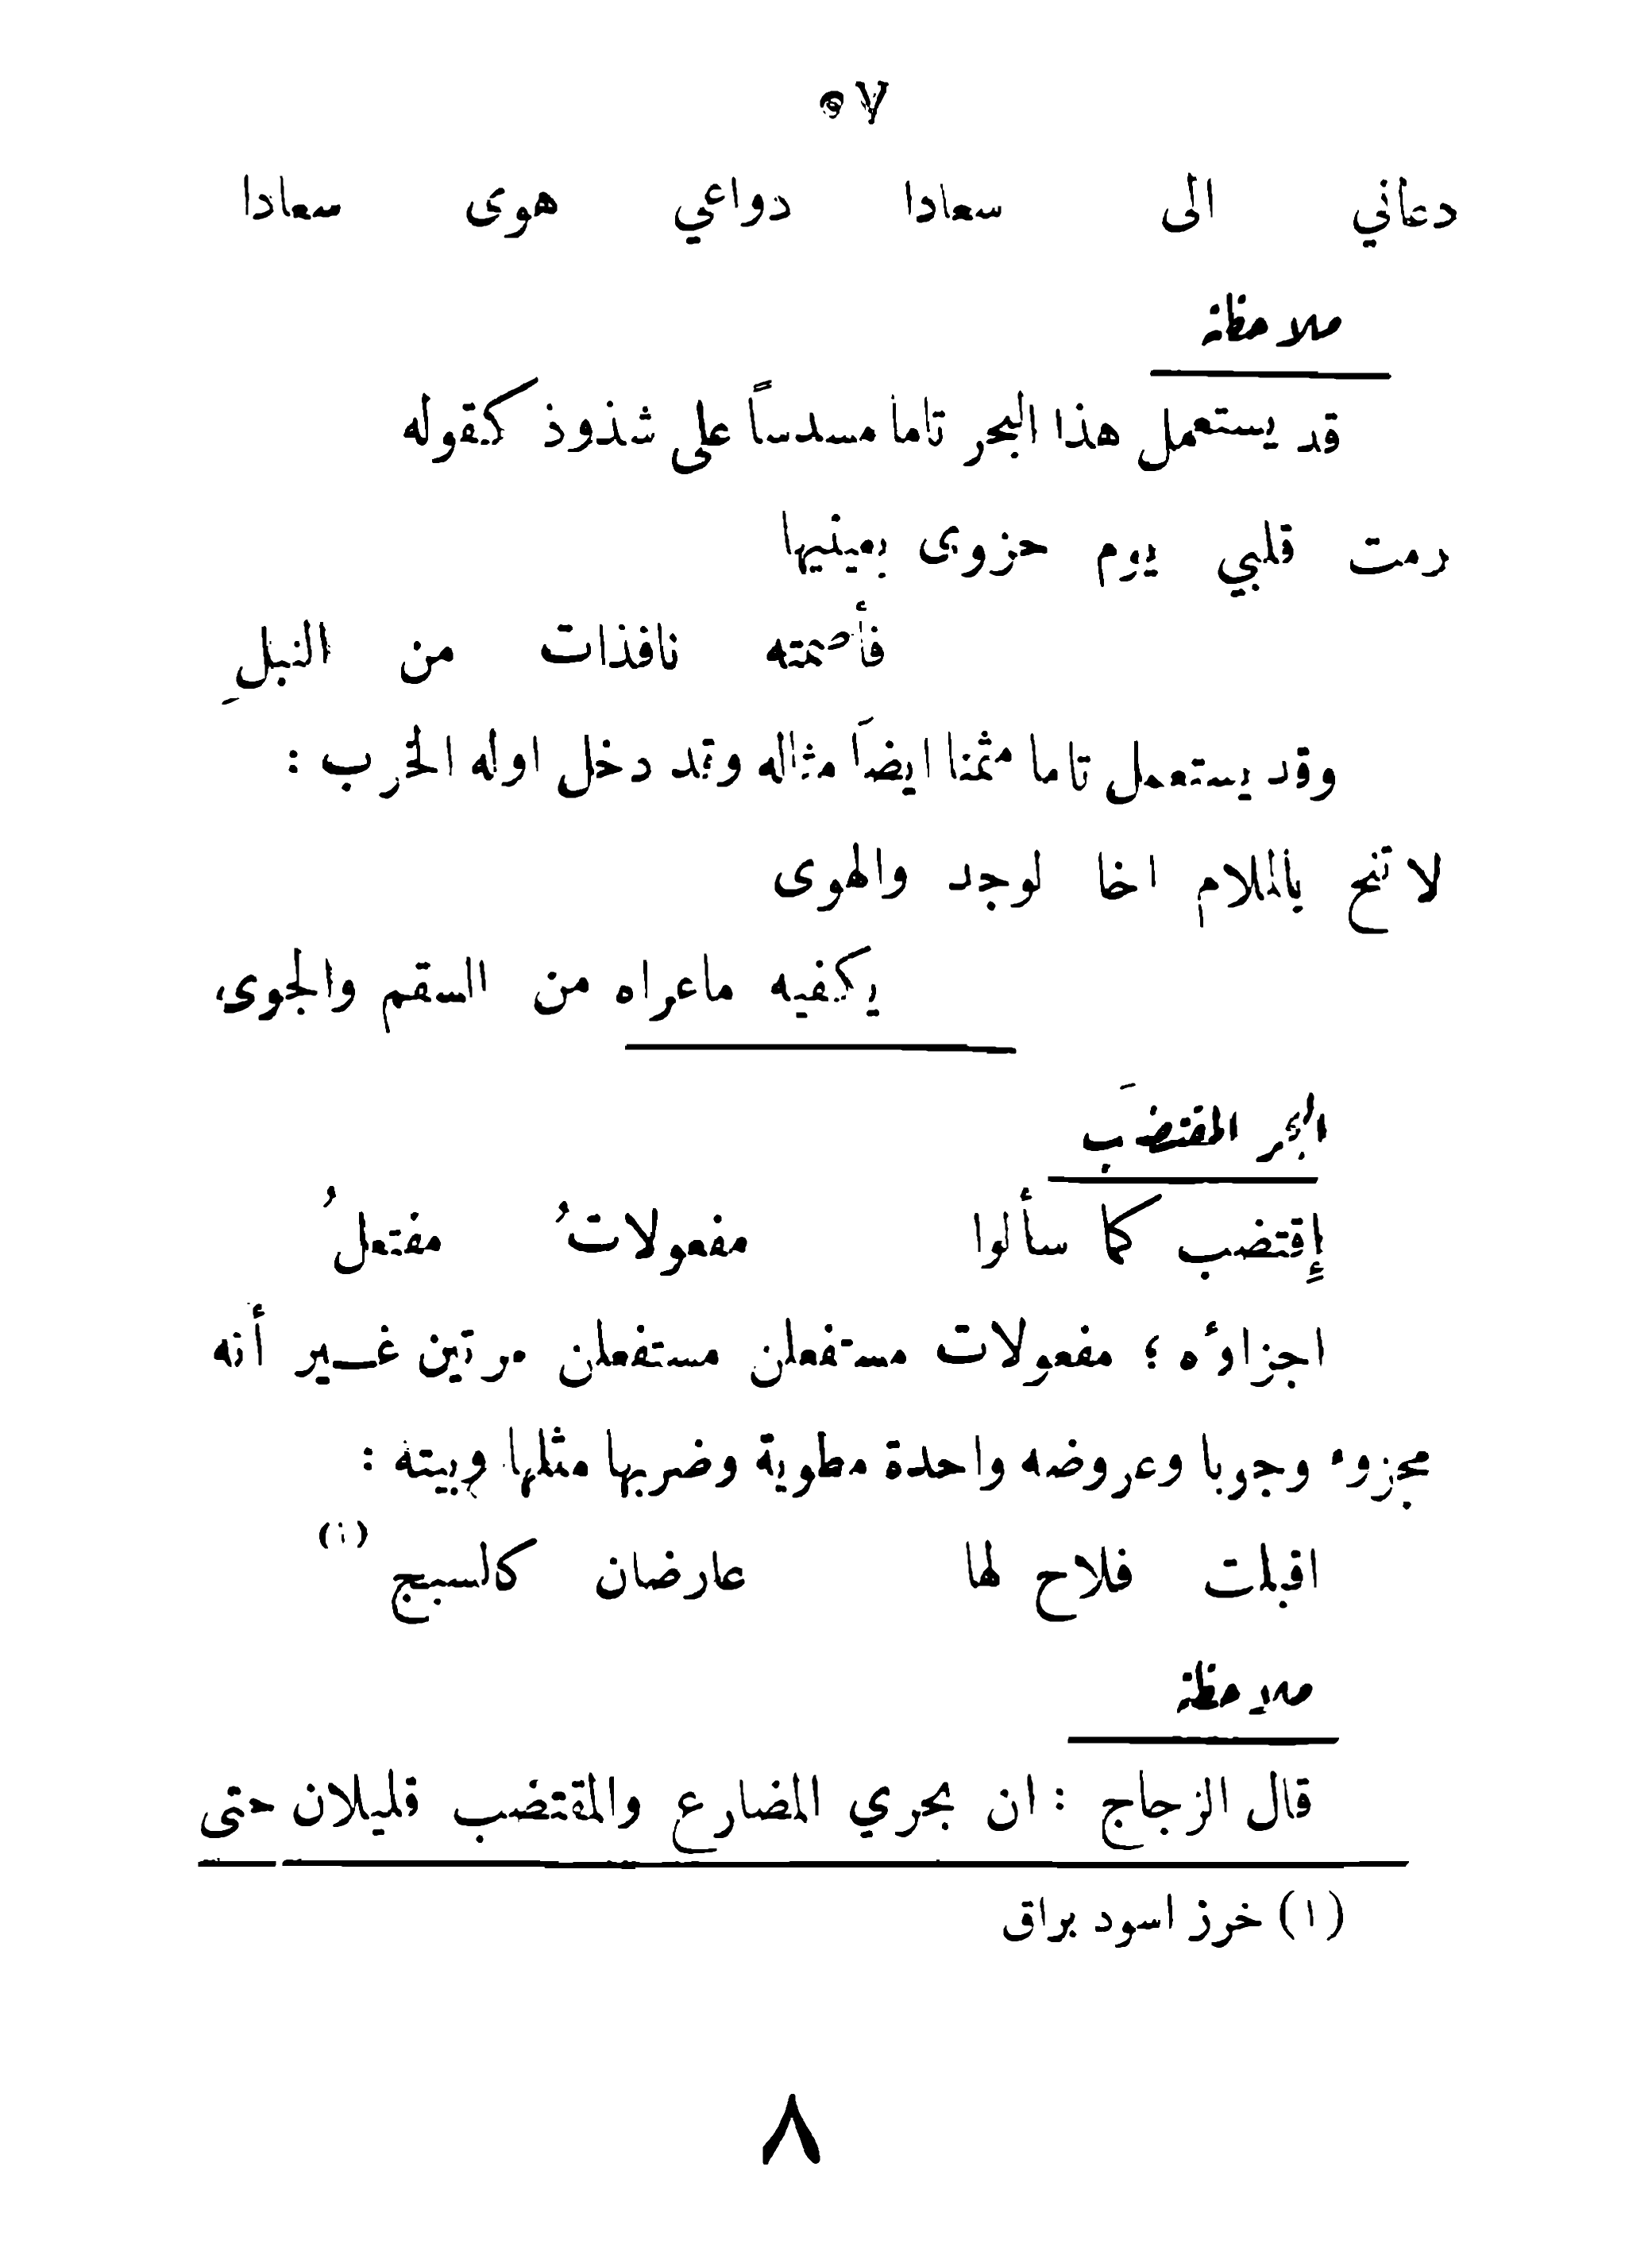 ٥٧
دعاني الى سعادا دواعي هوى سعادا
ملاحظة
قد يستعمل هذا البحر تاما مسدساً على شذوذ كقوله
رمت قلبي يوم حزوى بعينيها
فأصمته نافذات من النبلِ
وقد يستعمل تاما مثمنا ايضاً مثاله وقد دخل اوله الخرب :
لا تنح بالملام اخا لوجد والهوى
يكفيه ماعراه من السقم والجوى
البحر المقتضَب
إِقتضب كما سألوا مفعولاتُ مفتعلُ
اجزاؤه ؛ مفعولات مستفعلن مستفعلن مرتين غير أنه
مجزوء وجوبا وعروضه واحدة مطوية وضربها مثلها وبيته :
اقبلت فلاح لها عارضان كالسبج (١)
ملاحظة
قال الزجاج : ان بحري المضارع والمقتضب قليلان حتى
(١) خرز اسود براق
٨